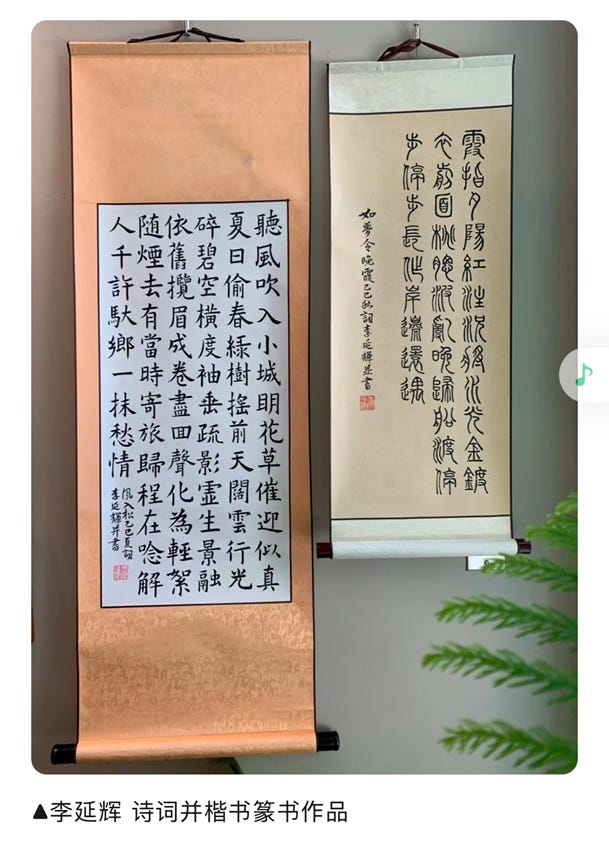 霞指夕陽紅注況將水光金鍍
衣前面桃波亂晚歸船渡停
步停步長佇岸邊還遇
如夢令晚霞乙巳秋詞李延輝並書
聽風吹入小城明花草催迎似真
夏日偷春綠樹搖前天闊雲行光
碎碧空橫度袖垂疏影靈生景融
依舊攬眉成卷盡回聲化為輕絮
随煙去有當時寄旅歸程在唸解
人千許馱鄉一抹愁情
風入松乙巳夏詞
李延輝并書
▲李延辉 诗词并楷书篆书作品